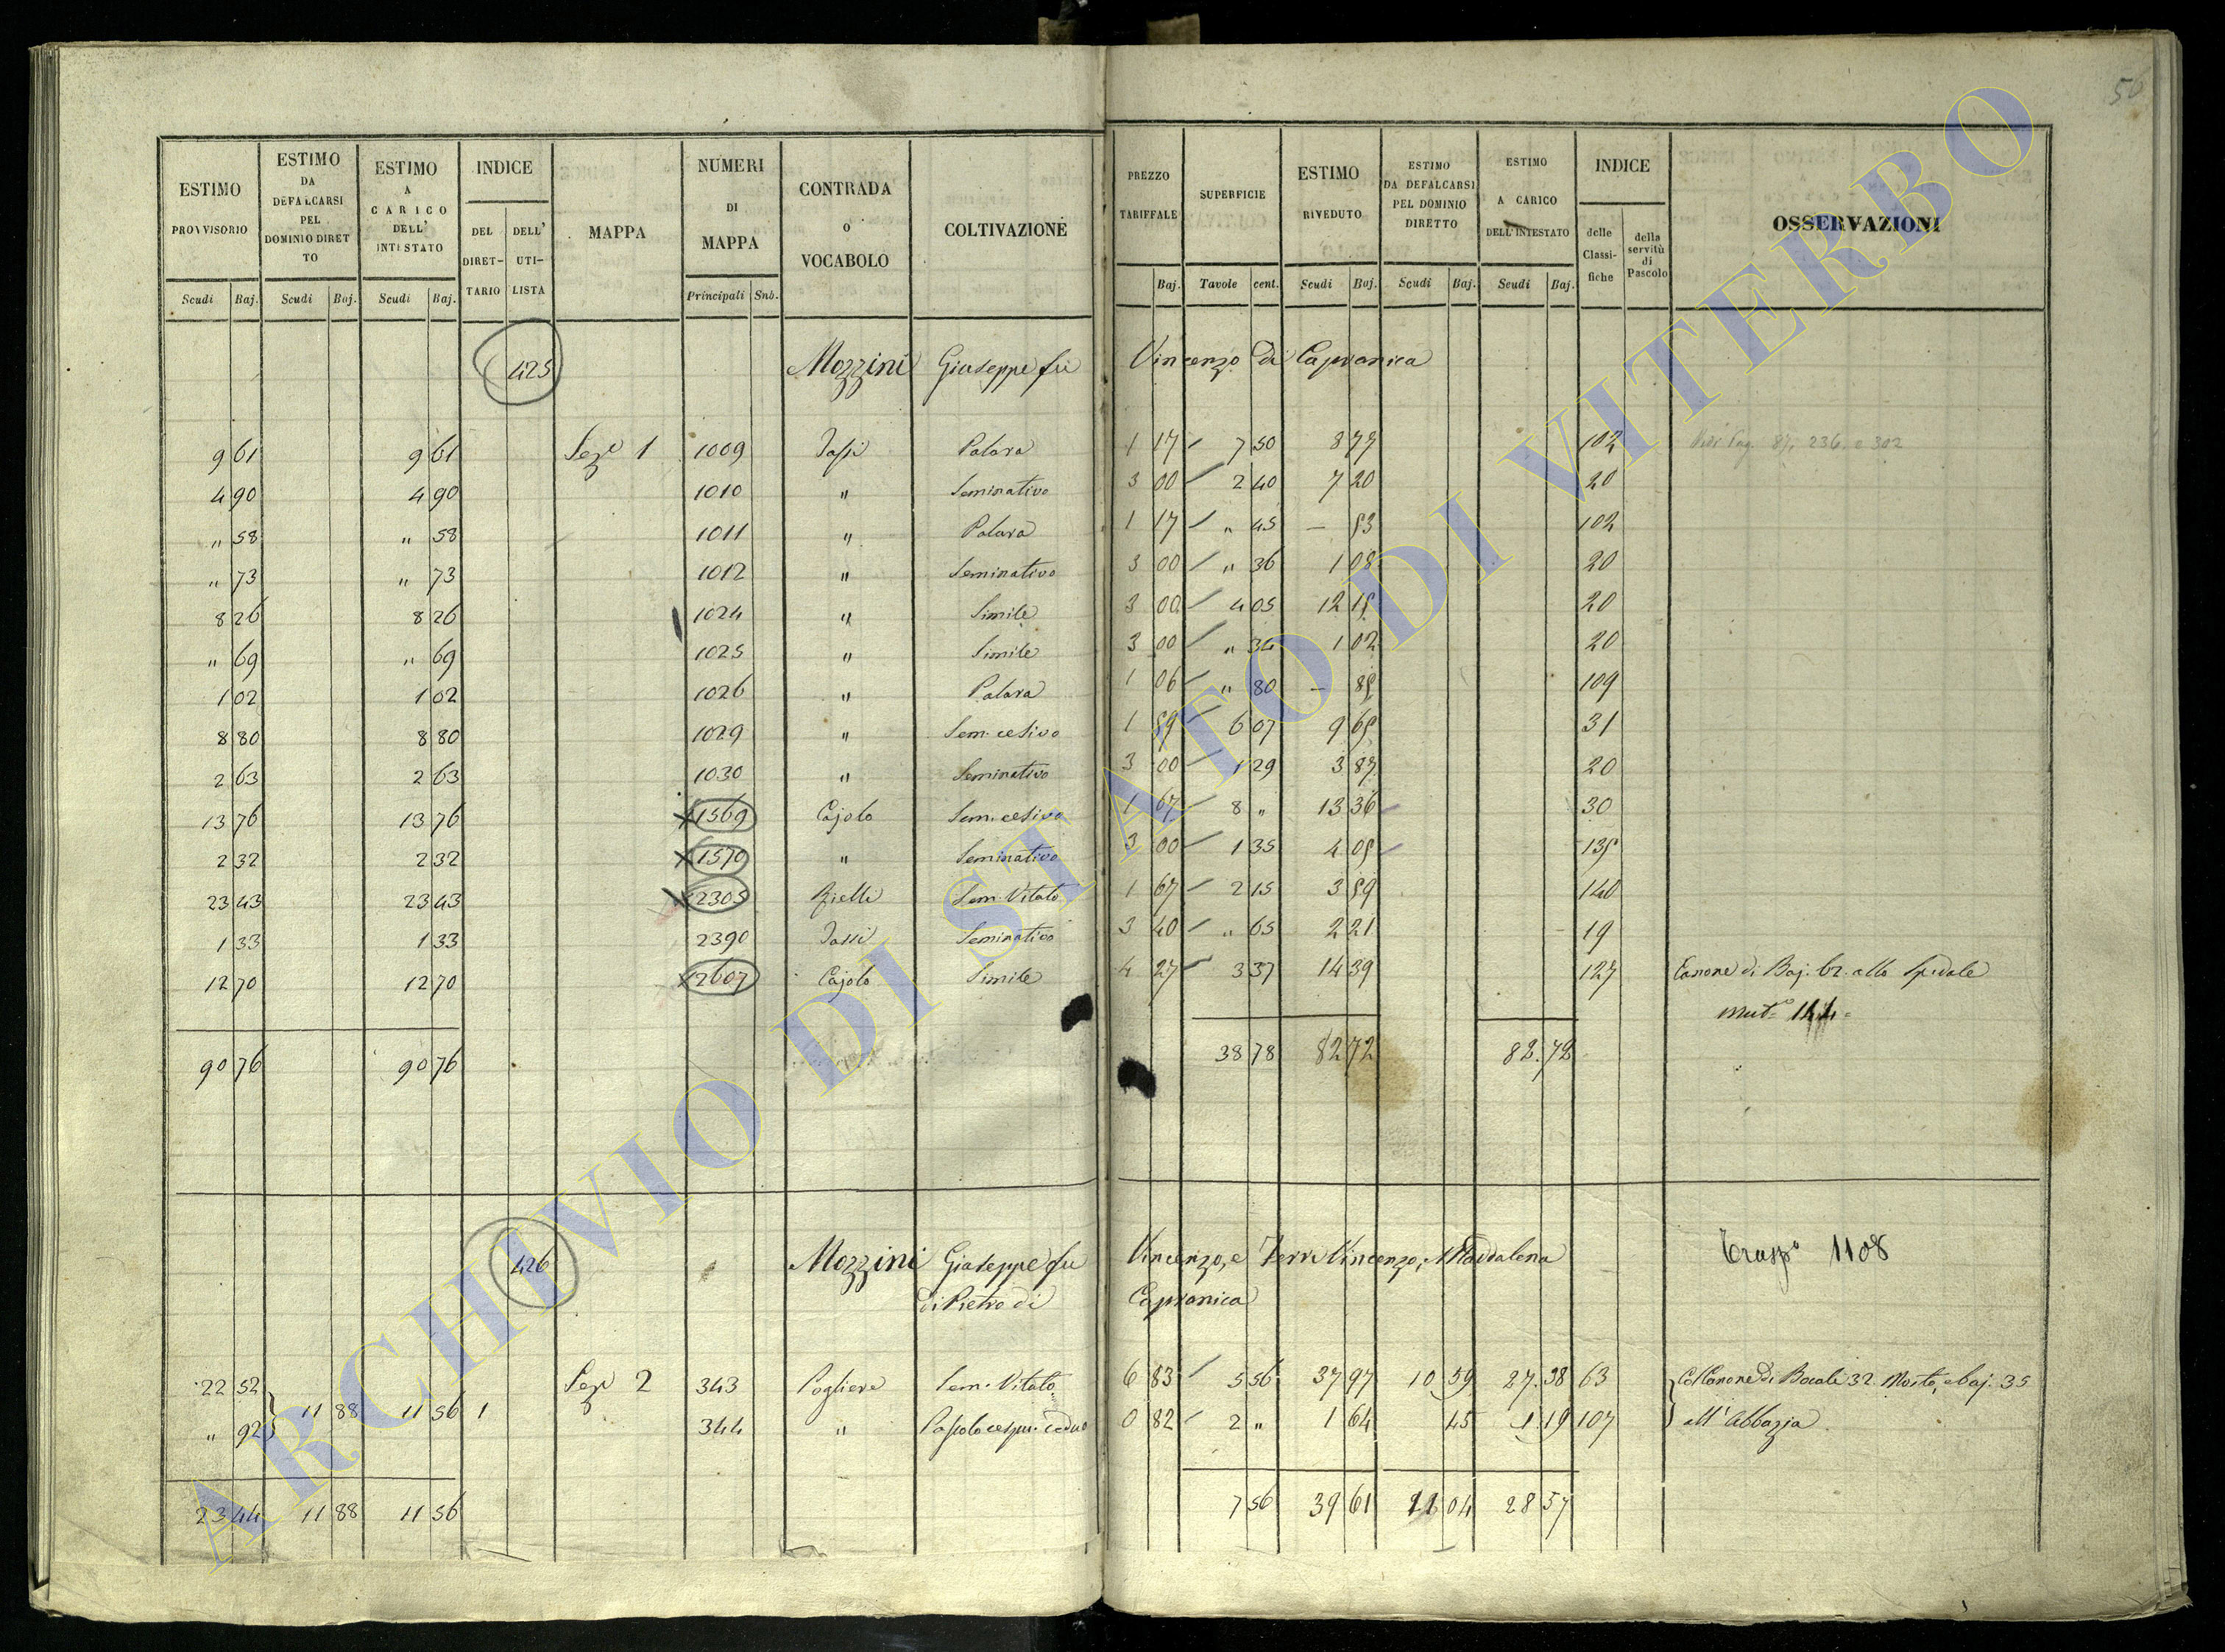 50
ESTIMO PROVVISORIO | ESTIMO DA DEFALCARSI PEL DOMINIO DIRETTO | ESTIMO A CARICO DELL' INTESTATO | INDICE DEL DIRETTARIO | DELL' UTILISTA | MAPPA | NUMERI DI MAPPA | CONTRADA O VOCABOLO | COLTIVAZIONE | PREZZO TARIFFALE | SUPERFICIE | ESTIMO RIVEDUTO | ESTIMO DA DEFALCARSI PEL DOMINIO DIRETTO | ESTIMO A CARICO DELL'INTESTATO | INDICE delle Classifiche | della servitù di Pascolo | OSSERVAZIONI
Scudi Baj. | Scudi Baj. | Scudi Baj. | Principali Sub. | Baj. | Tavole cent. | Scudi Baj. | Scudi Baj. | Scudi Baj.
425 Mozzini Giuseppe fu Vincenzo di Capranica
9 61 | 9 61 | Seze 1 | 1009 | Palara | 1 17 | 7 50 | 8 77 | 102 | Pag. 87, 236. e 302
4 90 | 4 90 | 1010 | " | Seminativo | 3 00 | 2 40 | 7 20 | 20
" 58 | " 58 | 1011 | " | Palara | 1 17 | " 45 | – 53 | 102
" 73 | " 73 | 1012 | " | Seminativo | 3 00 | " 36 | 1 08 | 20
8 26 | 8 26 | 1024 | " | Simile | 3 00 | 4 05 | 12 15 | 20
" 69 | " 69 | 1025 | " | Simile | 3 00 | " 34 | 1 02 | 20
1 02 | 1 02 | 1026 | " | Palara | 1 06 | " 80 | – 85 | 109
8 80 | 8 80 | 1029 | " | Sem. cesivo | 1 59 | 6 07 | 9 65 | 31
2 63 | 2 63 | 1030 | " | Seminativo | 3 00 | 1 29 | 3 87 | 20
13 76 | 13 76 | 1569 | Cajolo | Sem. cesivo | 1 67 | 8 " | 13 36 | 30
2 32 | 2 32 | 1570 | " | Seminativo | 3 00 | 1 35 | 4 05 | 135
23 43 | 23 43 | 2305 | Sem. Vitato | 1 67 | 2 15 | 3 59 | 140
1 33 | 1 33 | 2390 | Seminativo | 3 40 | " 65 | 2 21 | 19
12 70 | 12 70 | 2607 | Cajolo | Simile | 4 27 | 3 37 | 14 39 | 127 | Canone di Baj. 62. allo Spedale
90 76 | 90 76 | 38 78 | 82 72 | 82.72
426 Mozzini Giuseppe fu Vincenzo, e Ferri Vincenzo, e Maddalena
di Pietro di Capranica
1108
22 52 | Seze 2 | 343 | Pogliere | Sem. Vitato | 6 83 | 5 56 | 37 97 | 10 59 | 27.38 | 63 | Col Canone di Bocali 32. Mosto, e baj. 35
" 92 | 11 88 | 11 56 | 1 | 344 | " | 0 82 | 2 " | 1 64 | 45 | 1.19 | 107 | all'Abbazia
23 44 | 11 88 | 11 56 | 7 56 | 39 61 | 11 04 | 28 57
ARCHIVIO DI STATO DI VITERBO